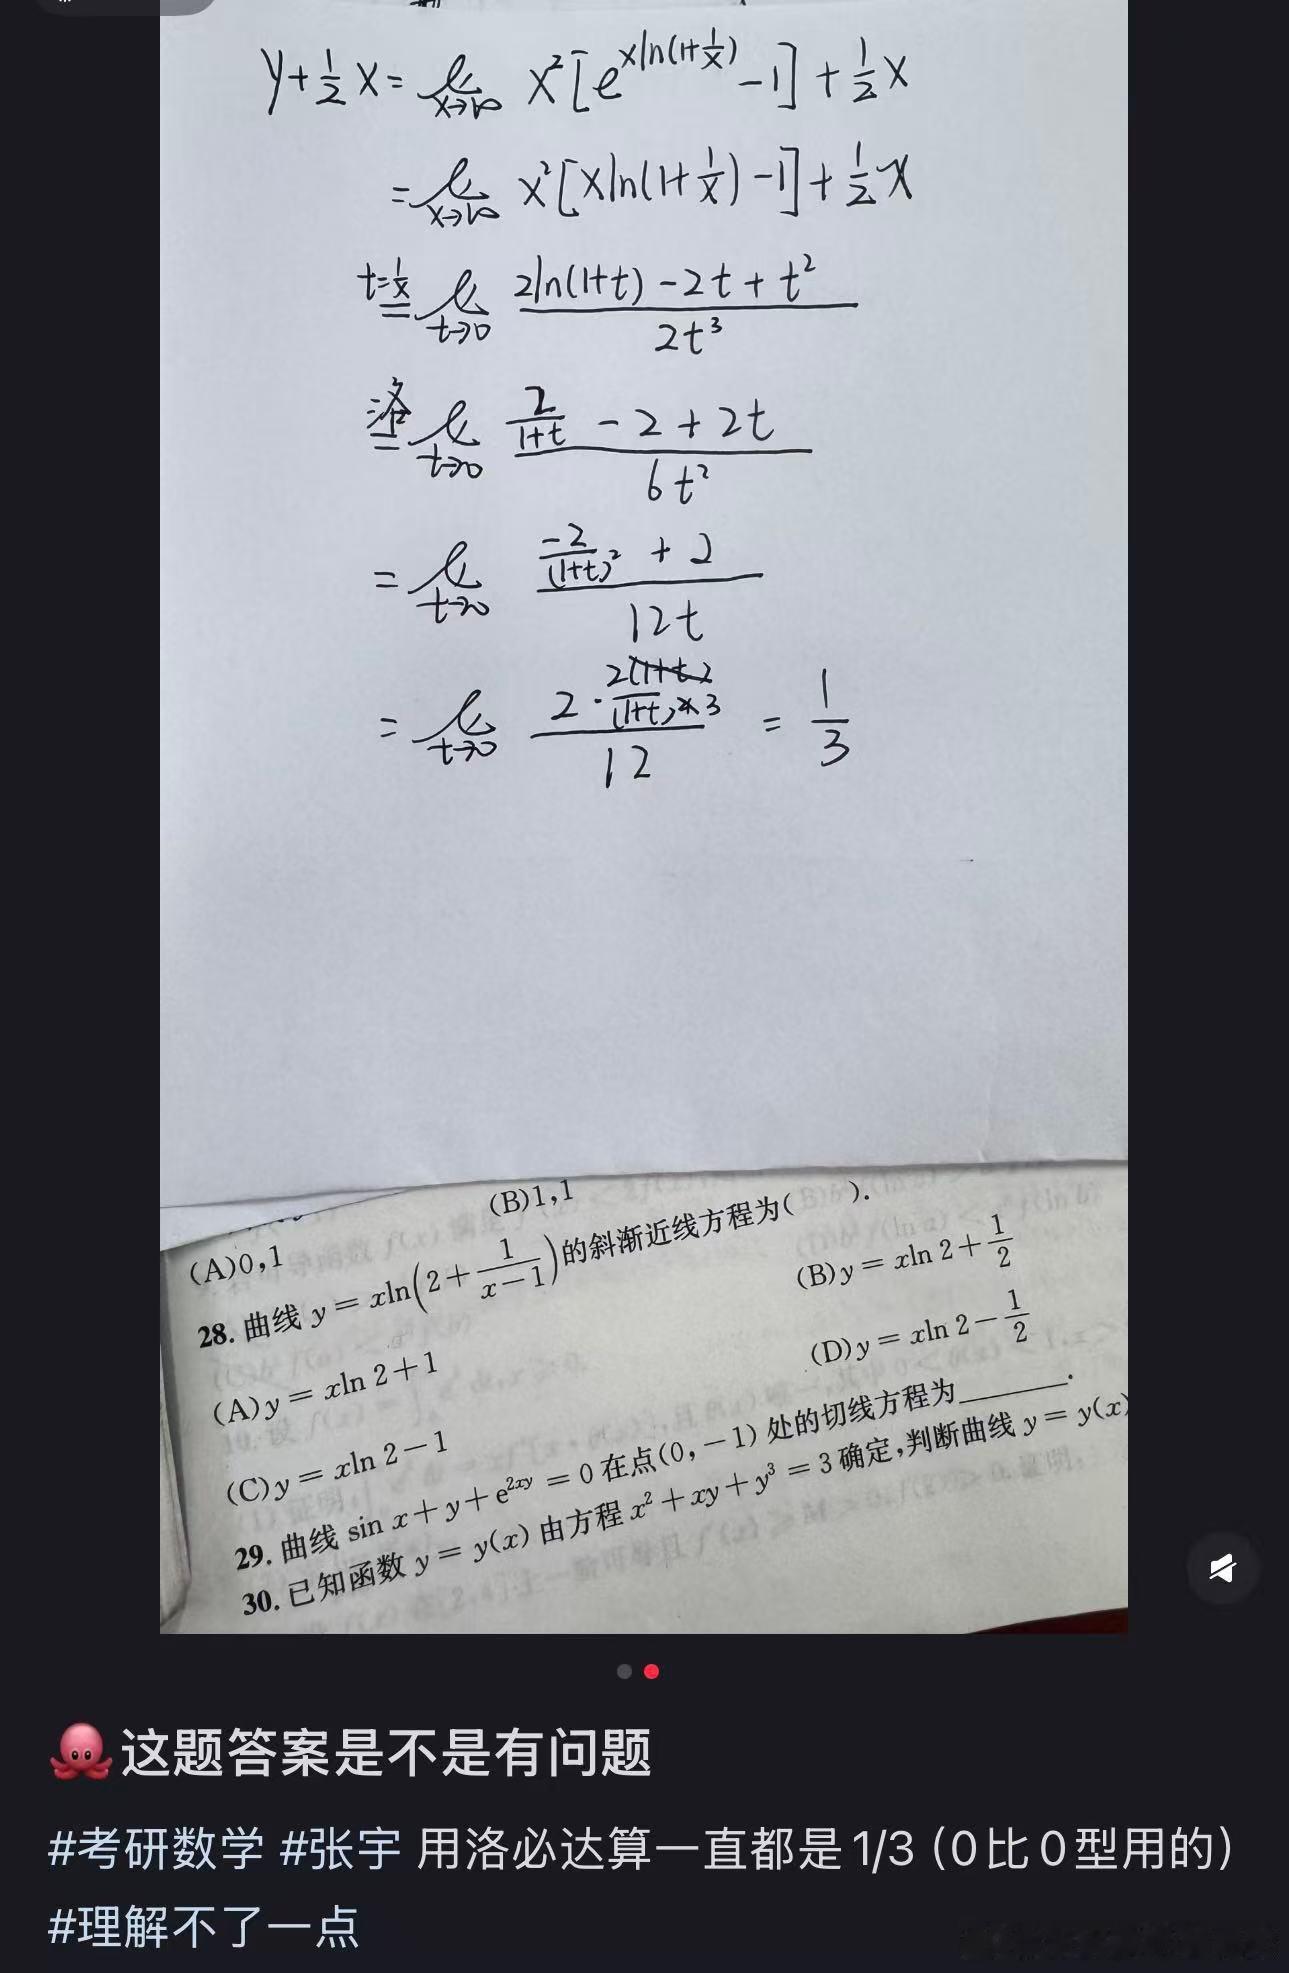 y+½x= lim x→∞ x²[e^{xln(1+1/x)}-1]+½x
= lim x→∞ x²[xln(1+1/x)-1]+½x
t=1/x = lim t→0 (2ln(1+t)-2t+t²)/(2t³)
洛 = lim t→0 (2/(1+t) - 2 + 2t)/(6t²)
= lim t→0 (-2/(1+t)² + 2)/(12t)
= lim t→0 (2·2/(1+t)³)/12 = 1/3
(A)0,1 (B)1,1
28. 曲线 y = xln(2+1/(x-1))的斜渐近线方程为( ).
(A)y = xln 2+1 (B)y = xln 2+1/2
(C)y = xln 2-1 (D)y = xln 2-1/2
29. 曲线 sin x+y+e^{2xy} = 0 在点(0,-1) 处的切线方程为______.
30. 已知函数 y = y(x) 由方程 x²+xy+y³ = 3 确定,判断曲线 y = y(x)
🐙这题答案是不是有问题
#考研数学 #张宇 用洛必达算一直都是1/3(0比0型用的)
#理解不了一点